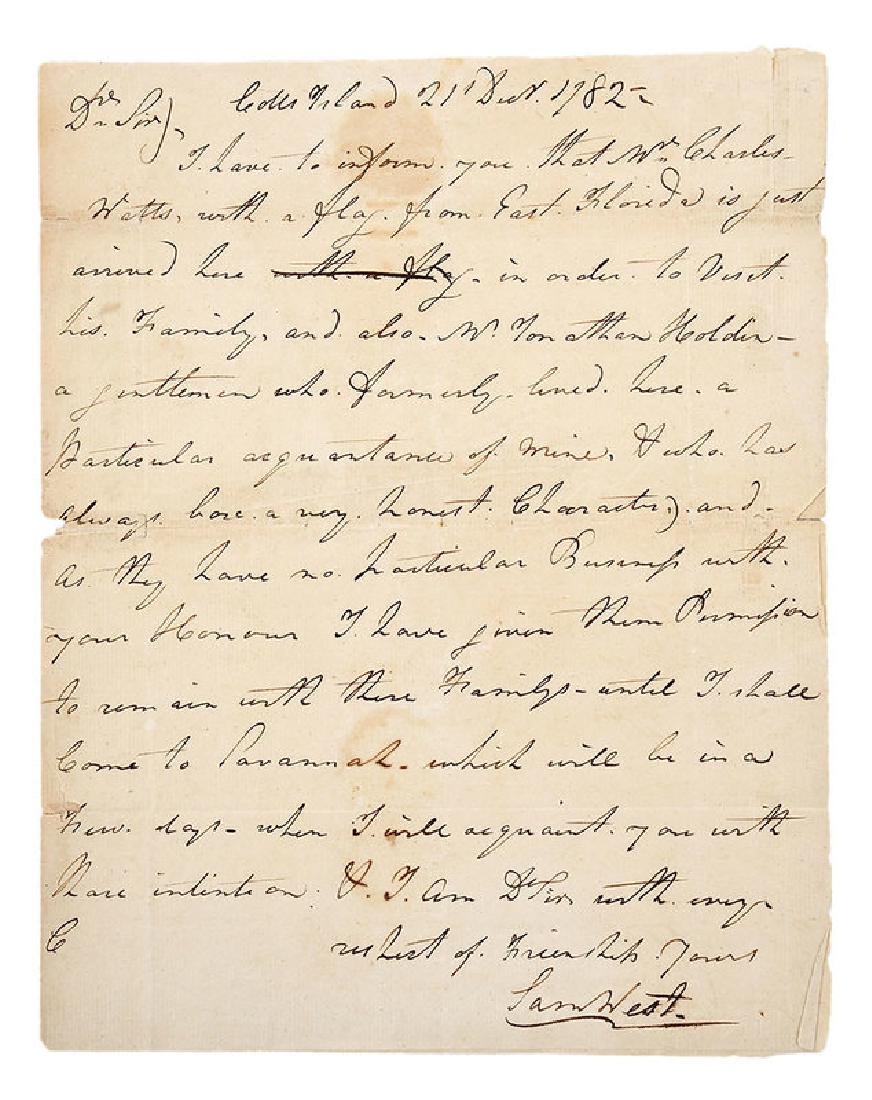 Colls Island 21st Decr. 1782 -
Dr. Sir).
I. have. to inform. you. that Mr. Charles-
Watts, with. a flag. from. East. Florida is just
arrived here with a flag - in order. to Visit.
his. Family, and. also. Mr. Jonathan Holden -
a gentlemen who. formerly. lived. here. a
Particular acquantance of. mine. & who. has
always. bore. a very. honest. Charracter.). and. -
As. they have no. particular Business with.
your Honour I. have given them Permission
to remain with there Familys - until I. shall
Come to Savannah - which will be in a
Few. days - when I. will acquaint. you with
thare intention. & I. Am Dr Sir, with. every.
C respect of. Freenship. Yours
Saml West.